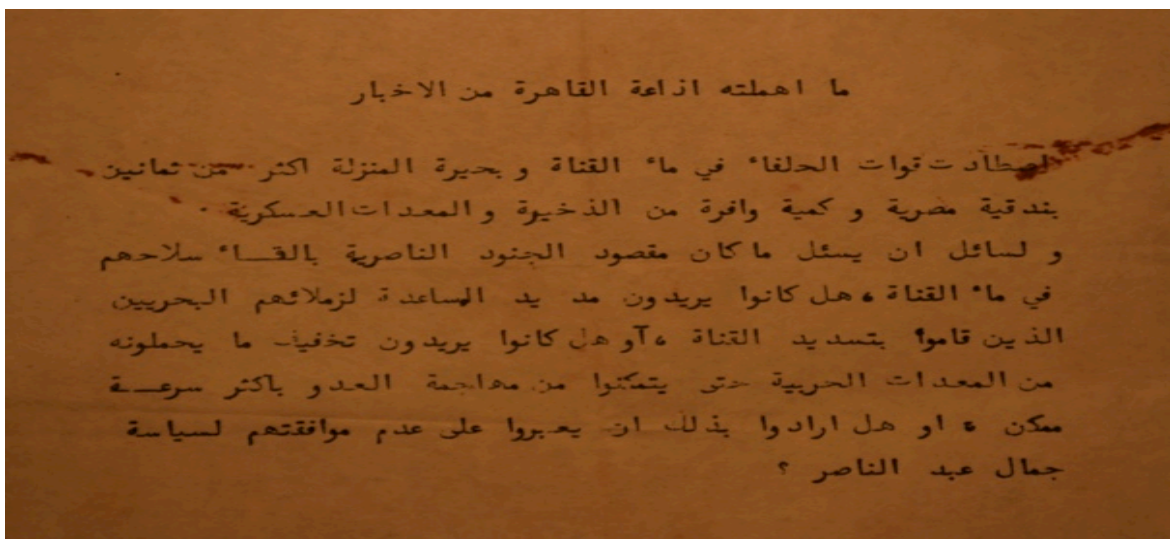 ما اهملته اذاعة القاهرة من الاخبار
اصطادت قوات الحلفاء في ماء القناة و بحيرة المنزلة اكثر من ثمانين
بندقية مصرية و كمية وافرة من الذخيرة و المعدات العسكرية .
و لسائل ان يسئل ما كان مقصود الجنود الناصرية بالقـــاء سلاحهم
في ماء القناة ، هل كانوا يريدون مد يد المساعدة لزملائهم البحريين
الذين قاموا بتسديد القناة ، أو هل كانوا يريدون تخفيف ما يحملونه
من المعدات الحربية حتى يتمكنوا من مهاجمة العدو باكثر سرعـــة
ممكن ، او هل ارادوا بذلك ان يعبروا على عدم موافقتهم لسياسة
جمال عبد الناصر ؟